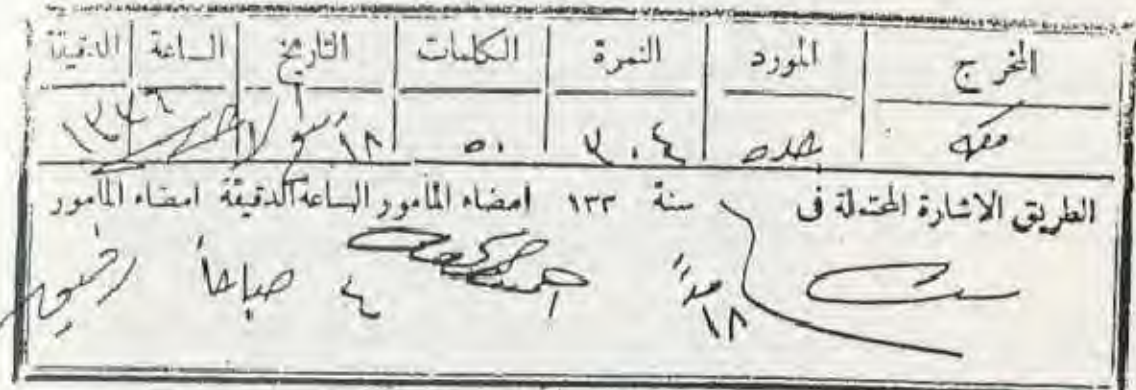 المخرج المورد النمرة الكلمات التاريخ الساعة الدقيقة
مكه جده ٣٠٤ ٥٠ ١٨ ١٣٣٦
الطريق الاشارة المحتملة فى سنة ١٣٣ امضاء المأمور الساعة الدقيقة امضاء المأمور
١٨ ٤ صباحاً